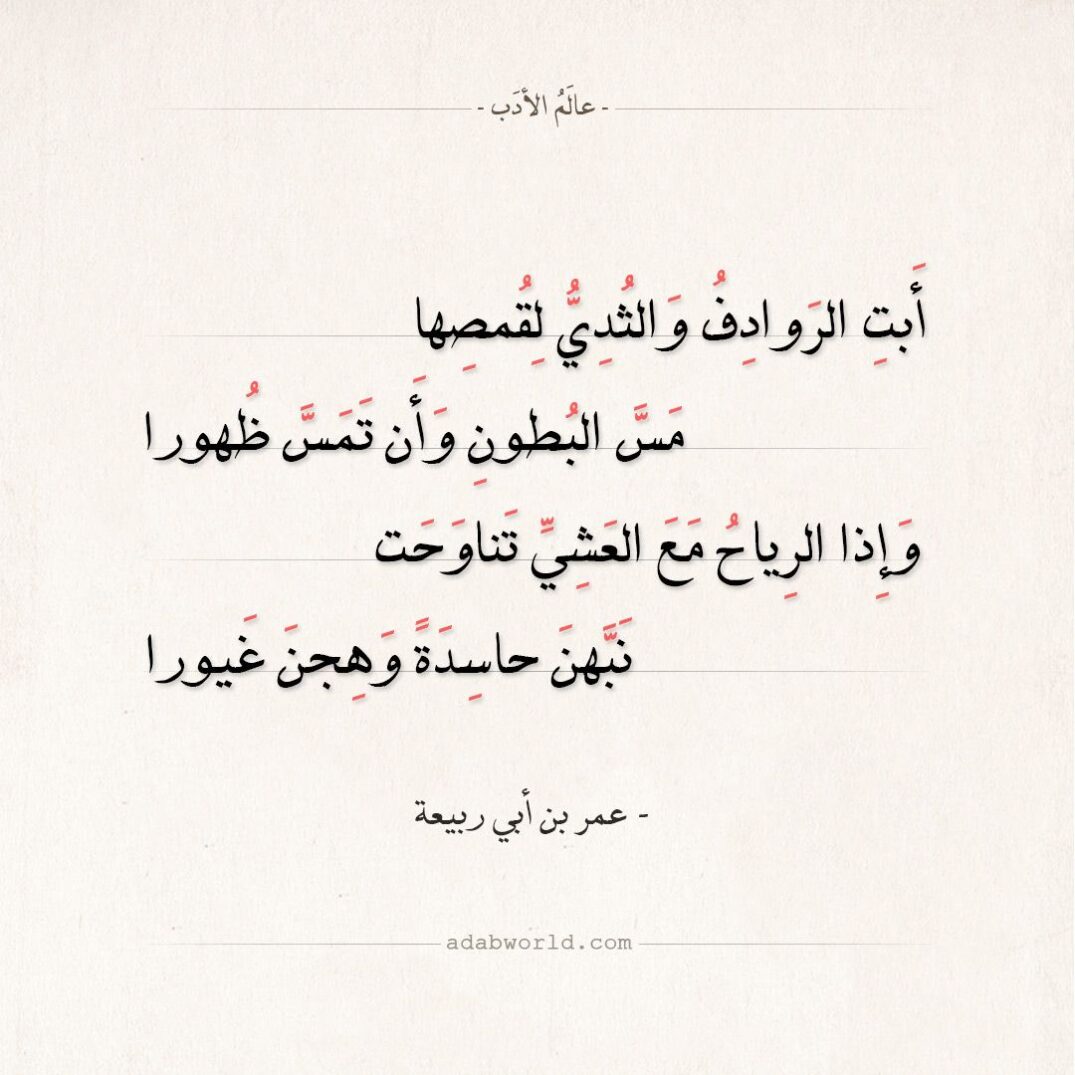 - عالَمُ الأدَب -
أَبتِ الرَوادِفُ وَالثُدِيُّ لِقُمصِها
مَسَّ البُطونِ وَأَن تَمَسَّ ظُهورا
وَإِذا الرِياحُ مَعَ العَشِيِّ تَناوَحَت
نَبَّهنَ حاسِدَةً وَهِجنَ غَيورا
- عمر بن أبي ربيعة
adabworld.com